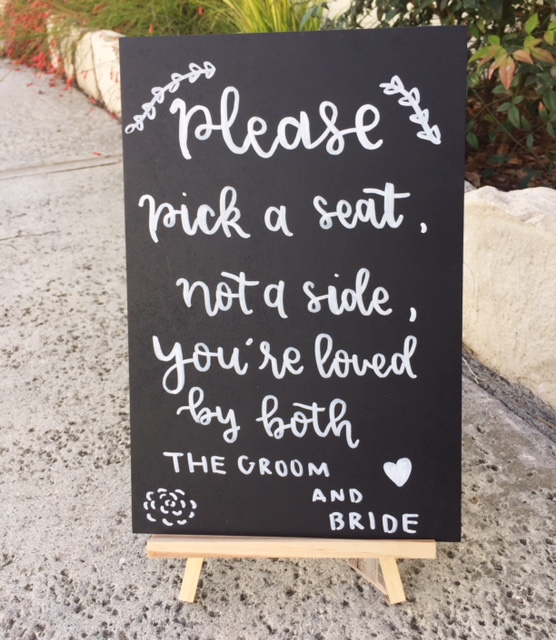 please
pick a seat,
not a side,
you're loved
by both
THE GROOM
AND
BRIDE